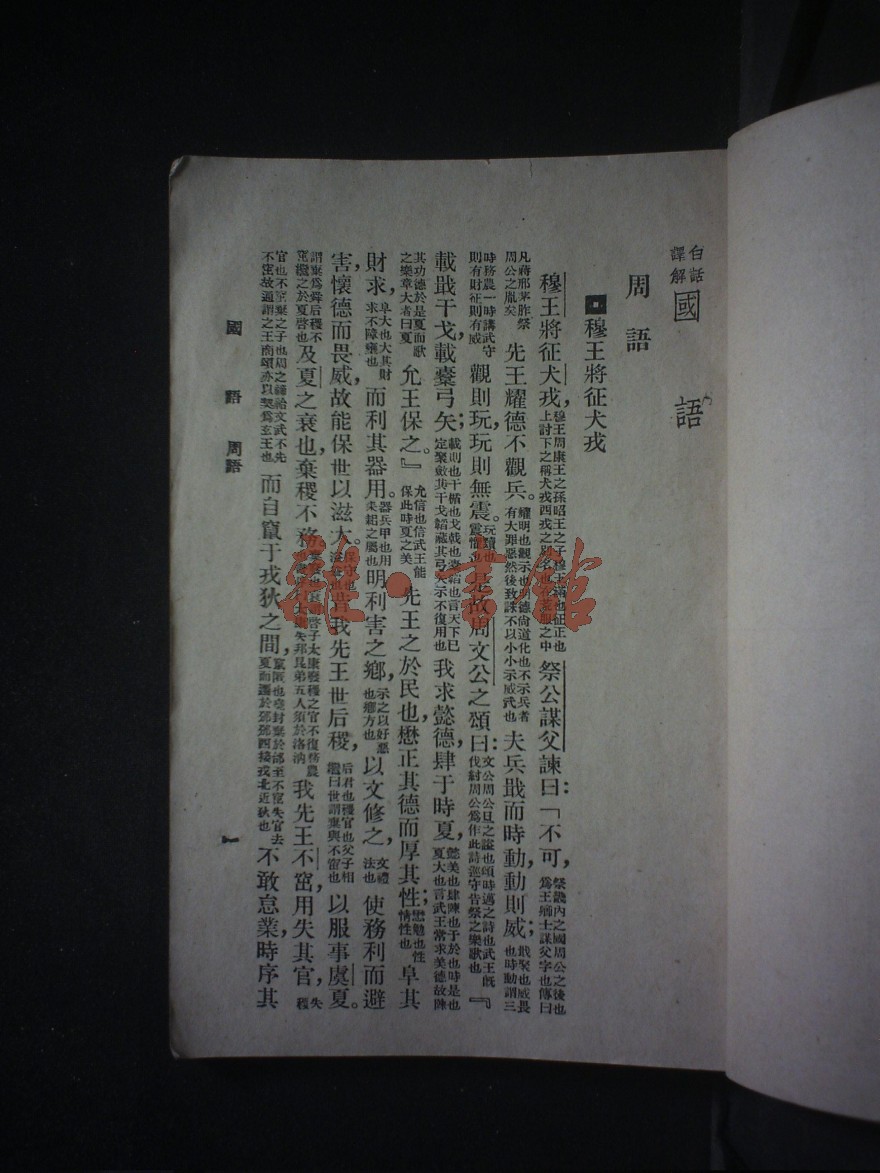 白話譯解 國語
周語
穆王將征犬戎
穆王將征犬戎，穆王周康王之孫昭王之子穆王滿也征正也上討下之稱犬戎西戎之別名也在荒服之中 祭公謀父諫曰：「不可，祭畿內之國周公之後也爲王卿士謀父字也傳曰
凡蔣邢茅胙祭周公之胤矣 先王耀德不觀兵。耀明也觀示也明德尙道化也不示兵者有大罪惡然後致誅不以小小示威武也 夫兵戢而時動，動則威；戢聚也威畏也時動謂三
時務農一時講武守則有財征則有威 觀則玩，玩則無震。玩黷也震懼也 是故周文公之頌曰：文公周公旦之諡也頌時邁之詩也武王旣伐紂周公爲作此詩巡守告祭之樂歌也『
載戢干戈，載櫜弓矢；載則也干楯也戈戟也櫜韜也言天下已定聚斂其干戈韜藏其弓矢示不復用也 我求懿德，肆于時夏，懿美也肆陳也于於也時是也夏大也言武王常求美德故陳
其功德於是夏而歌之樂章大者曰夏 允王保之。』允信也信武王能保此時夏之美 先王之於民也，懋正其德而厚其性；懋勉也性情性也 阜其
財求，阜大也大其財求不障壅也 而利其器用。器兵甲也用耒耜之屬也 明利害之鄉，示之以好惡也鄉方也 以文修之，文禮法也 使務利而避
害，懷德而畏威，故能保世以滋大。保守也滋益也 昔我先王世后稷，后君也稷官也父子相繼曰世謂棄與不窋也 以服事虞夏。
謂棄爲舜后稷不窋繼之於夏啓也 及夏之衰也，棄稷不務。棄廢也衰謂啓子太康廢稷之官不復務農也夏書曰太康失邦昆弟五人須於洛汭 我先王不窋，用失其官，失稷
官也不窋棄之子也周之禘祫文武不先不窋故通謂之王商頌亦以契爲玄王也 而自竄于戎狄之間，竄匿也堯封棄於邰至不窋失官去夏而遷於邠邠西接戎北近狄也 不敢怠業，時序其
國語 周語 一
雒·書館